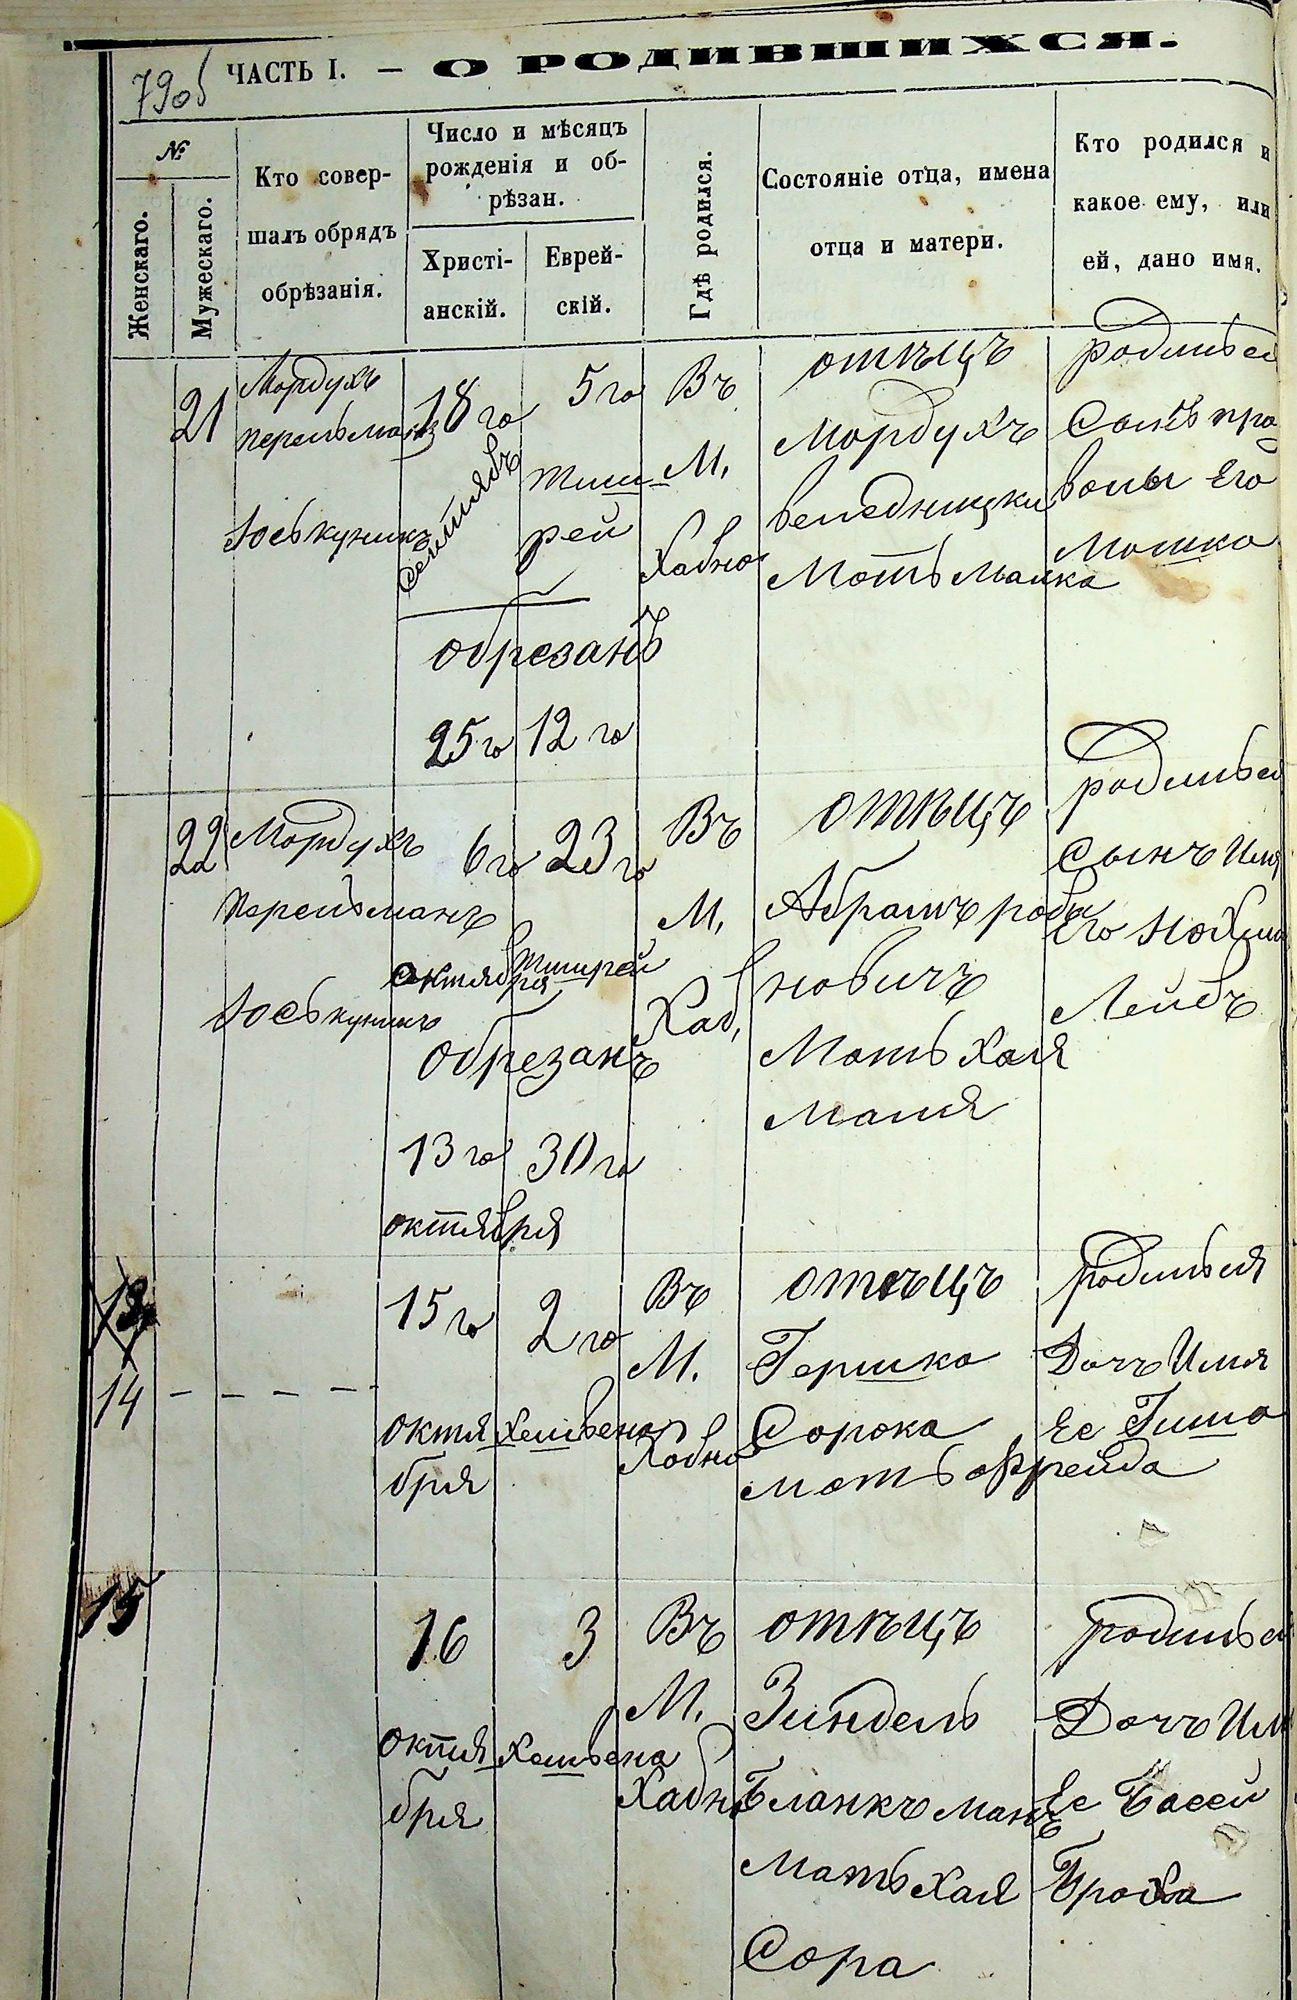 79об
ЧАСТЬ I. — О РОДИВШИХСЯ.
№
Женскаго.
Мужескаго.
Кто совер-
шалъ обрядъ
обрѣзанія.
Число и мѣсяцъ
рожденія и об-
рѣзан.
Христі-
анскій.
Еврей-
скій.
Гдѣ родился.
Состояніе отца, имена
отца и матери.
Кто родился и
какое ему, или
ей, дано имя.
21
Мордухъ
Перельманъ
Юськуникъ
18го
сентябъ
5го
тиш
рей
обрезанъ
25го 12го
Въ
М.
Хабно
отецъ
Мордухъ
Веледницки
Мать Малка
родилься
Сынъ про
воны Его
Мошко
22
Мордухъ
Перельманъ
Юськуникъ
6го 23го
октября
тишрей
обрезанъ
13го 30го
октября
Въ
М.
Хаб,
отецъ
Абрамъ раби
новичъ
Мать Хая
Маля
родилься
Сынъ Имя
Его Нохим
Лейбъ
14
15го
октя
бря
2го
Хешвена
Въ
М.
Хабно
отецъ
Гершко
Сорока
мать Фрейда
родилься
Дочъ Имя
Ее Гиша
15
16
октя
бря
3
Хешвена
Въ
М.
Хабн
отецъ
Зиндель
Бланкъманъ
Мать Хая
Сора
родилься
Дочъ Им
Ее Басей
Броха